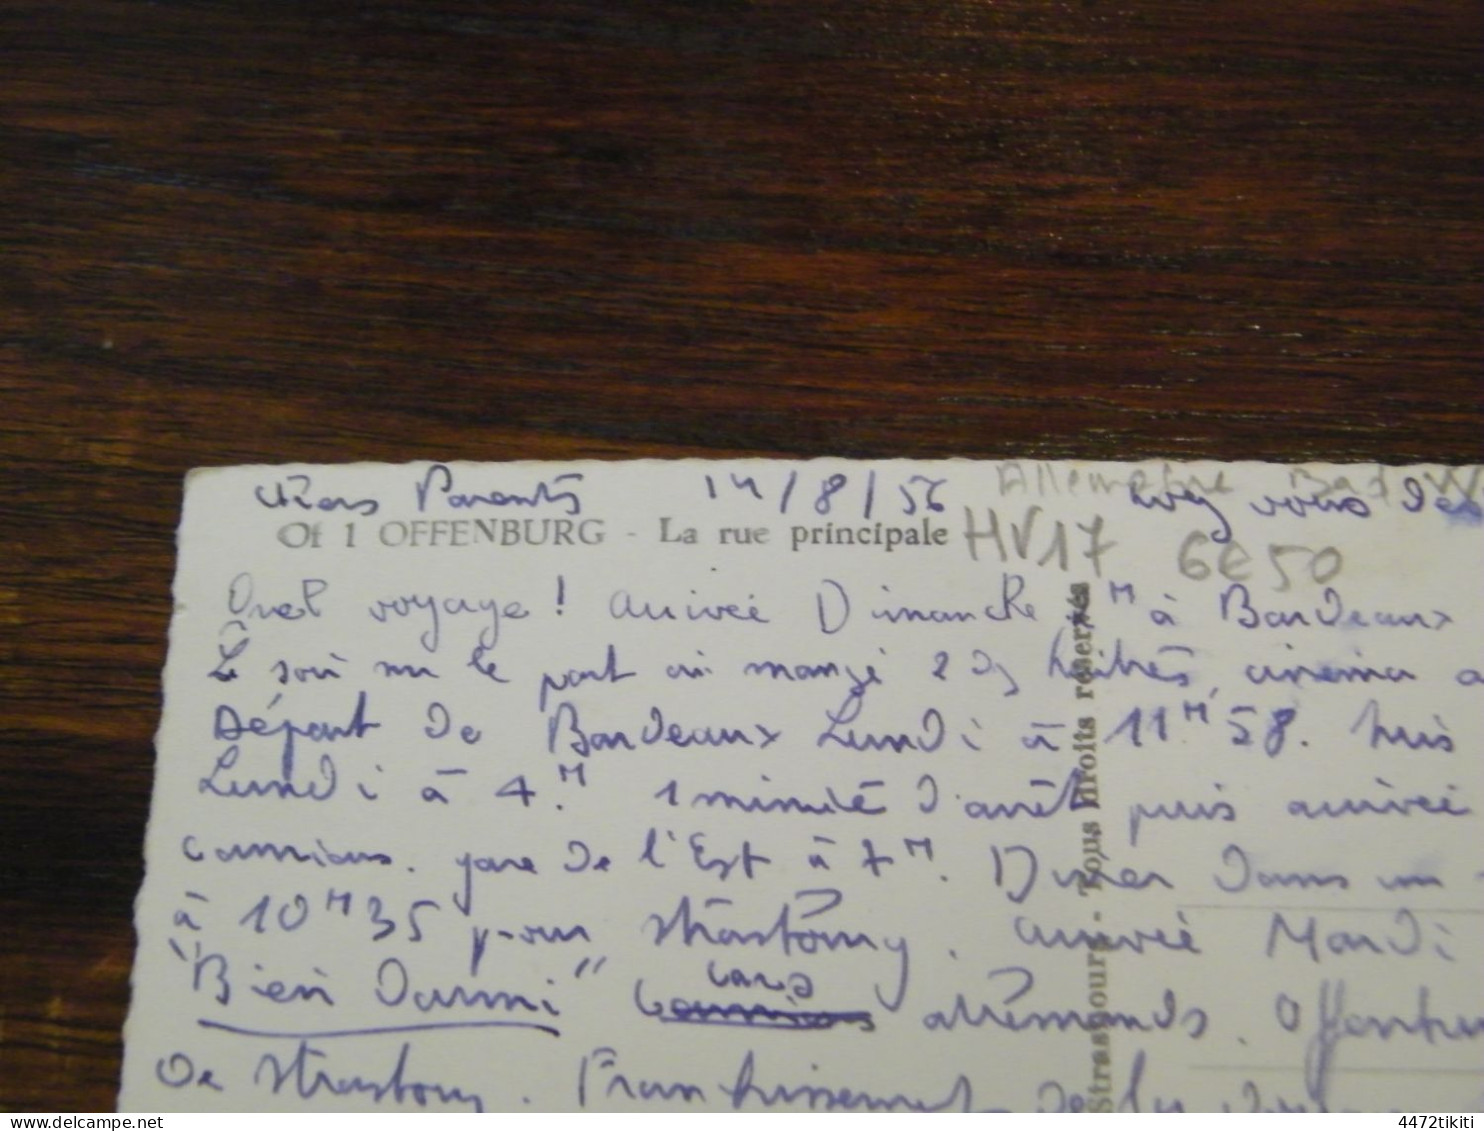 Chers Parents 14/8/56 Allemagne Bad
Of 1 OFFENBURG - La rue principale HV17 6€50
Quel voyage ! arrivée Dimanche à Bordeaux
Le soir sur le port on mangé 2 dz huitres, cinema
Départ de Bordeaux Lundi à 11H58. Puis
Lundi à 4H. 1 minute d'arrêt puis arrivée
camions. gare de l'Est à 7H. Diner dans un
à 10H35 pour Strasbourg. arrivée Mardi
"Bien dormi" cars allemands. Offenburg
de Strasbourg. Franchissement
Strasbourg - Tous droits réservés
vous
4472tikiti